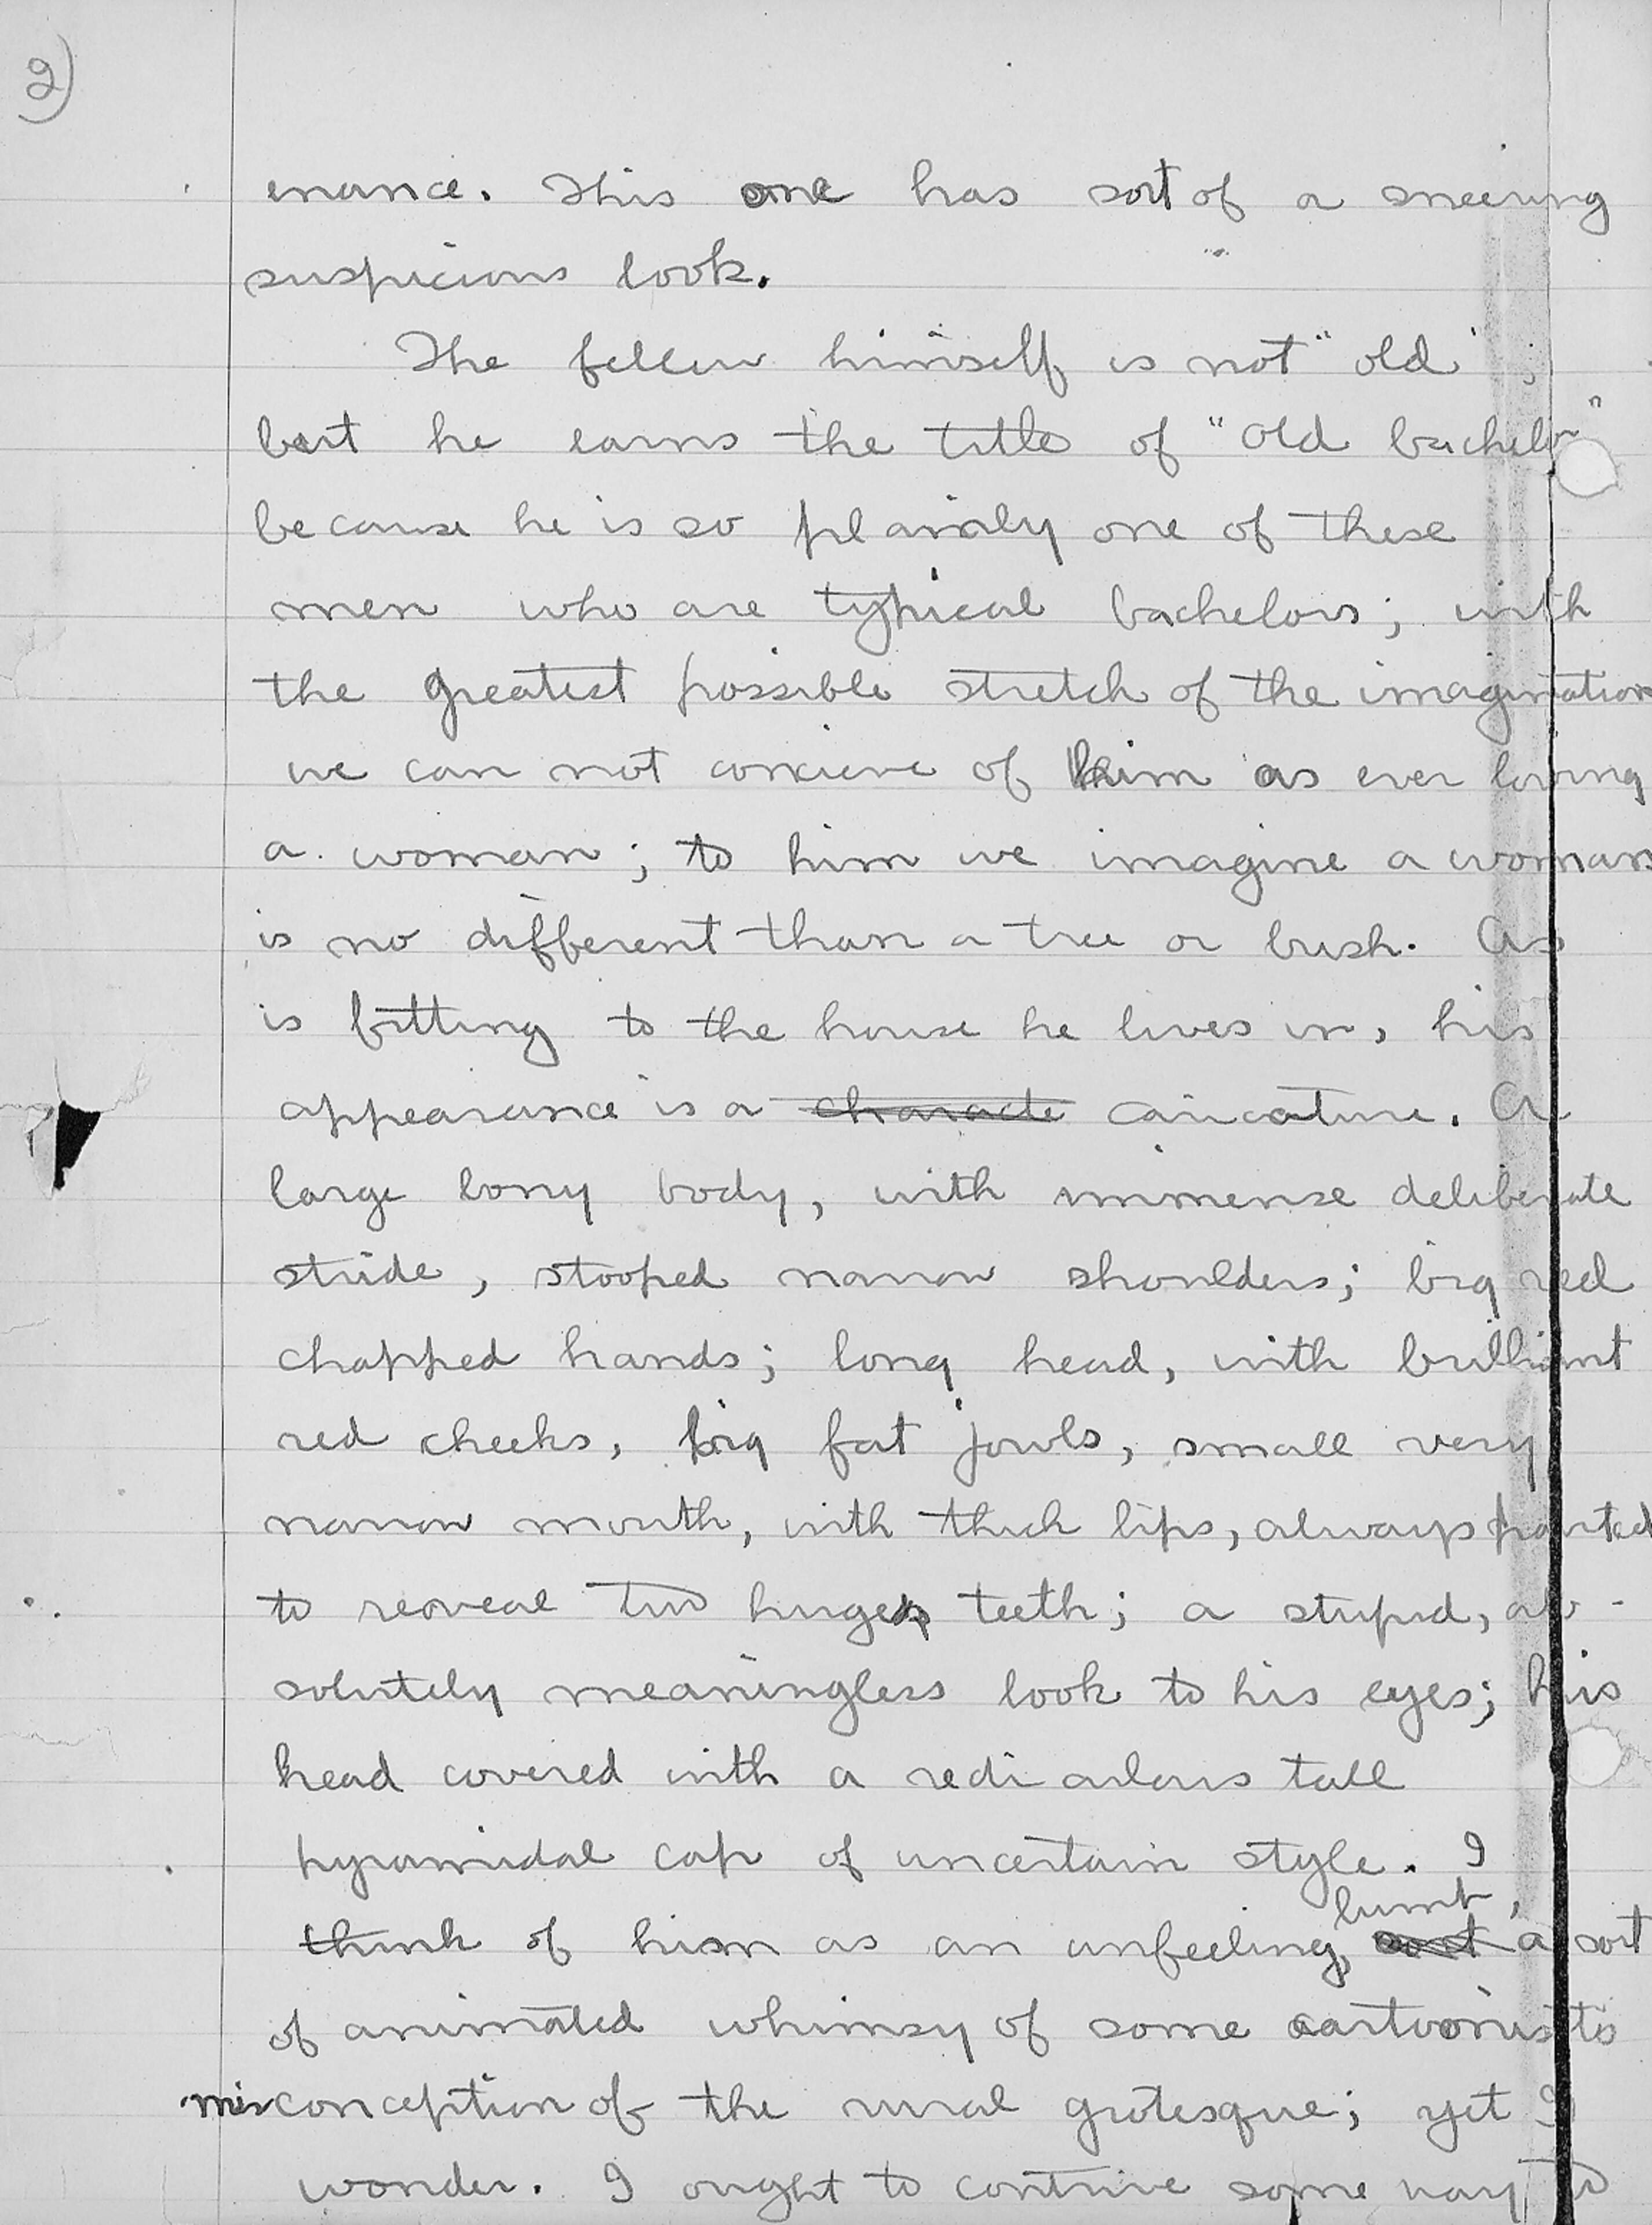 2)
enance. This one has sort of a sneering
suspicious look.
The fellow himself is not "old";
but he earns the title of "old bachelor"
because he is so plainly one of these
men who are typical bachelors; with
the greatest possible stretch of the imagination
we can not concieve of him as ever loving
a woman; to him we imagine a woman
is no different than a tree or bush. As
is fitting to the house he lives in, his
appearance is a characte caricature. A
large bony body, with immense deliberate
stride, stooped narrow shoulders; big red
chapped hands; long head, with brilliant
red cheeks, big fat jowls, small very
narrow mouth, with thick lips, always parted
to reaveal two huge teeth; a stupid, ab-
solutely meaningless look to his eyes; his
head covered with a rediculous tall
pyramidal cap of uncertain style. I
think of him as an unfeeling, sort a sort
of animated whimsy of some cartoonists
misconception of the rural grotesque; yet I
wonder. I ought to contrive some way to